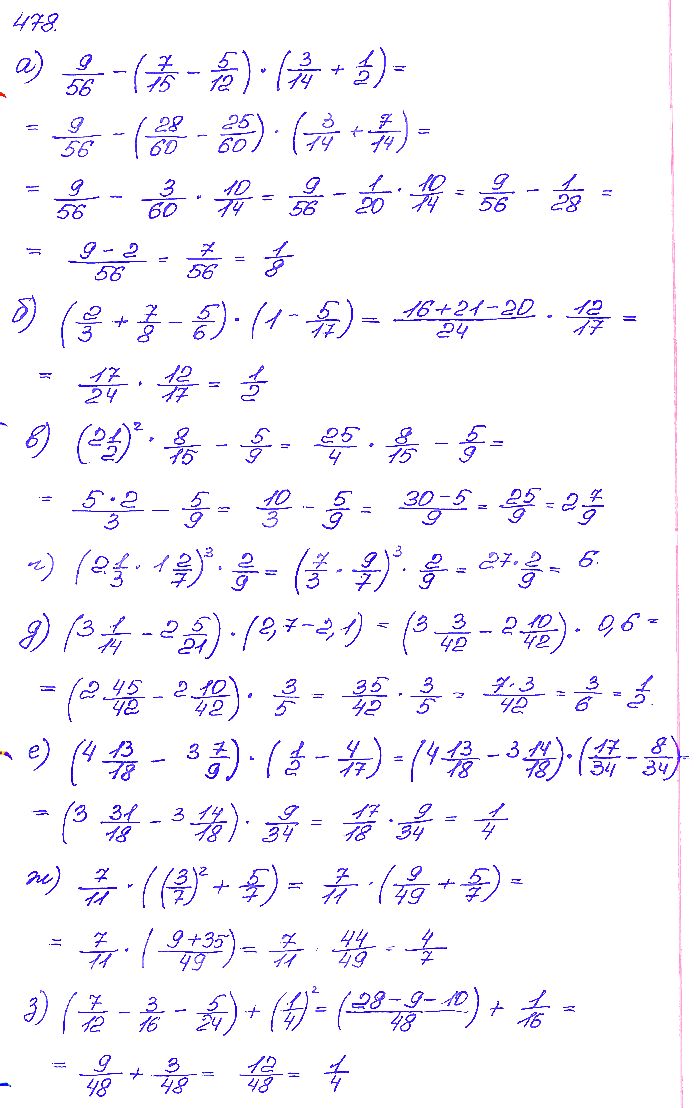 478.
а) 9/56 − (7/15 − 5/12) · (3/14 + 1/2) =
= 9/56 − (28/60 − 25/60) · (3/14 + 7/14) =
= 9/56 − 3/60 · 10/14 = 9/56 − 1/20 · 10/14 = 9/56 − 1/28 =
= (9 − 2)/56 = 7/56 = 1/8
б) (2/3 + 7/8 − 5/6) · (1 − 5/17) = (16+21−20)/24 · 12/17 =
= 17/24 · 12/17 = 1/2
в) (2 1/2)² · 8/15 − 5/9 = 25/4 · 8/15 − 5/9 =
= (5 · 2)/3 − 5/9 = 10/3 − 5/9 = (30−5)/9 = 25/9 = 2 7/9
г) (2 1/3 · 1 2/7)³ · 2/9 = (7/3 · 9/7)³ · 2/9 = 27 · 2/9 = 6.
д) (3 1/14 − 2 5/21) · (2,7 − 2,1) = (3 3/42 − 2 10/42) · 0,6 =
= (2 45/42 − 2 10/42) · 3/5 = 35/42 · 3/5 = (7 · 3)/42 = 3/6 = 1/2.
е) (4 13/18 − 3 7/9) · (1/2 − 4/17) = (4 13/18 − 3 14/18) · (17/34 − 8/34) =
= (3 31/18 − 3 14/18) · 9/34 = 17/18 · 9/34 = 1/4
ж) 7/11 · ((3/7)² + 5/7) = 7/11 · (9/49 + 5/7) =
= 7/11 · ((9+35)/49) = 7/11 · 44/49 = 4/7
з) (7/12 − 3/16 − 5/24) + (1/4)² = ((28−9−10)/48) + 1/16 =
= 9/48 + 3/48 = 12/48 = 1/4